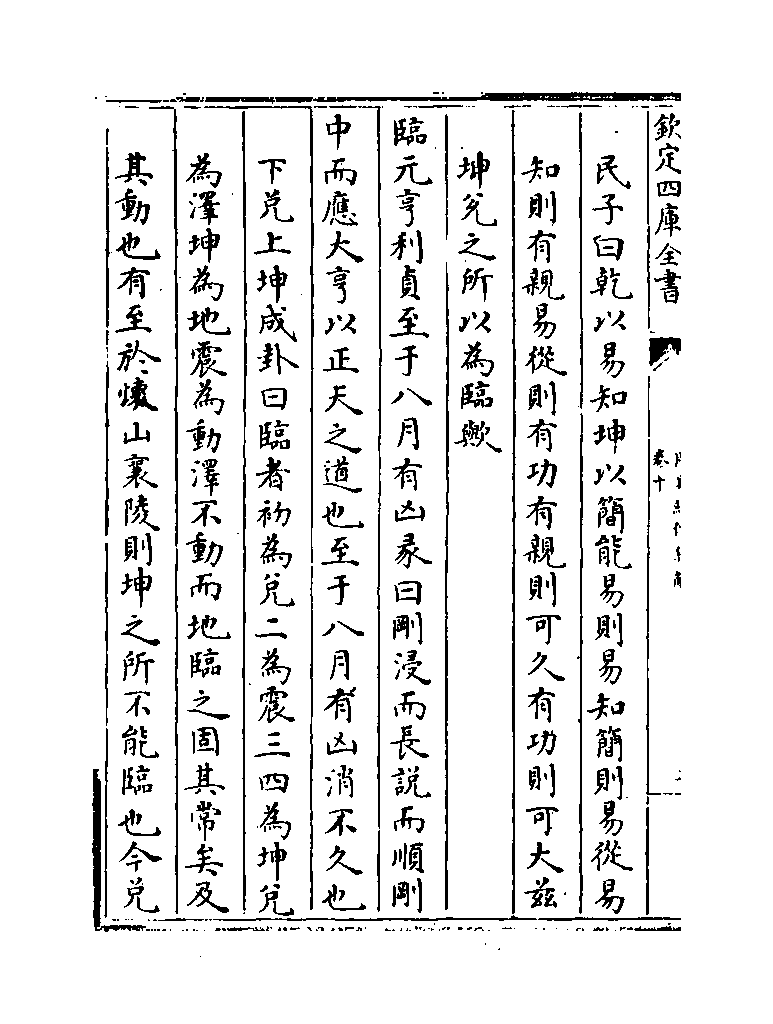 欽定四庫全書
卷十
民子曰乾以易知坤以簡能易則易知簡則易從易
知則有親易從則有功有親則可久有功則可大兹
坤兊之所以為臨歟
臨元亨利貞至于八月有凶彖曰剛浸而長説而順剛
中而應大亨以正天之道也至于八月有凶消不久也
下兊上坤成卦曰臨者初為兊二為震三四為坤兊
為澤坤為地震為動澤不動而地臨之固其常矣及
其動也有至於懐山襄陵則坤之所不能臨也今兊